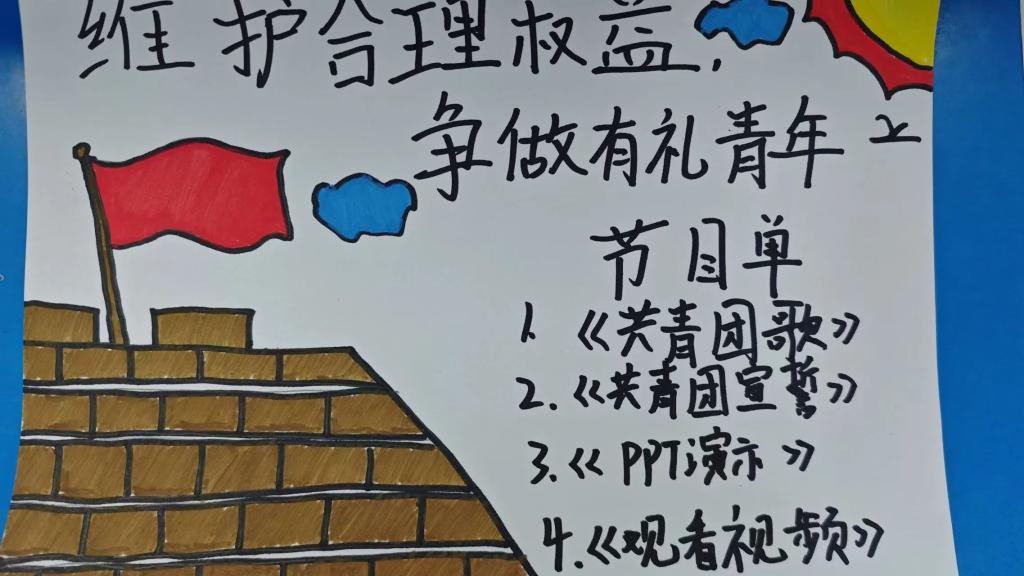 维护合理权益,
争做有礼青年之
节目单
1.《共青团歌》
2.《共青团宣誓》
3.《PPT演示》
4.《观看视频》